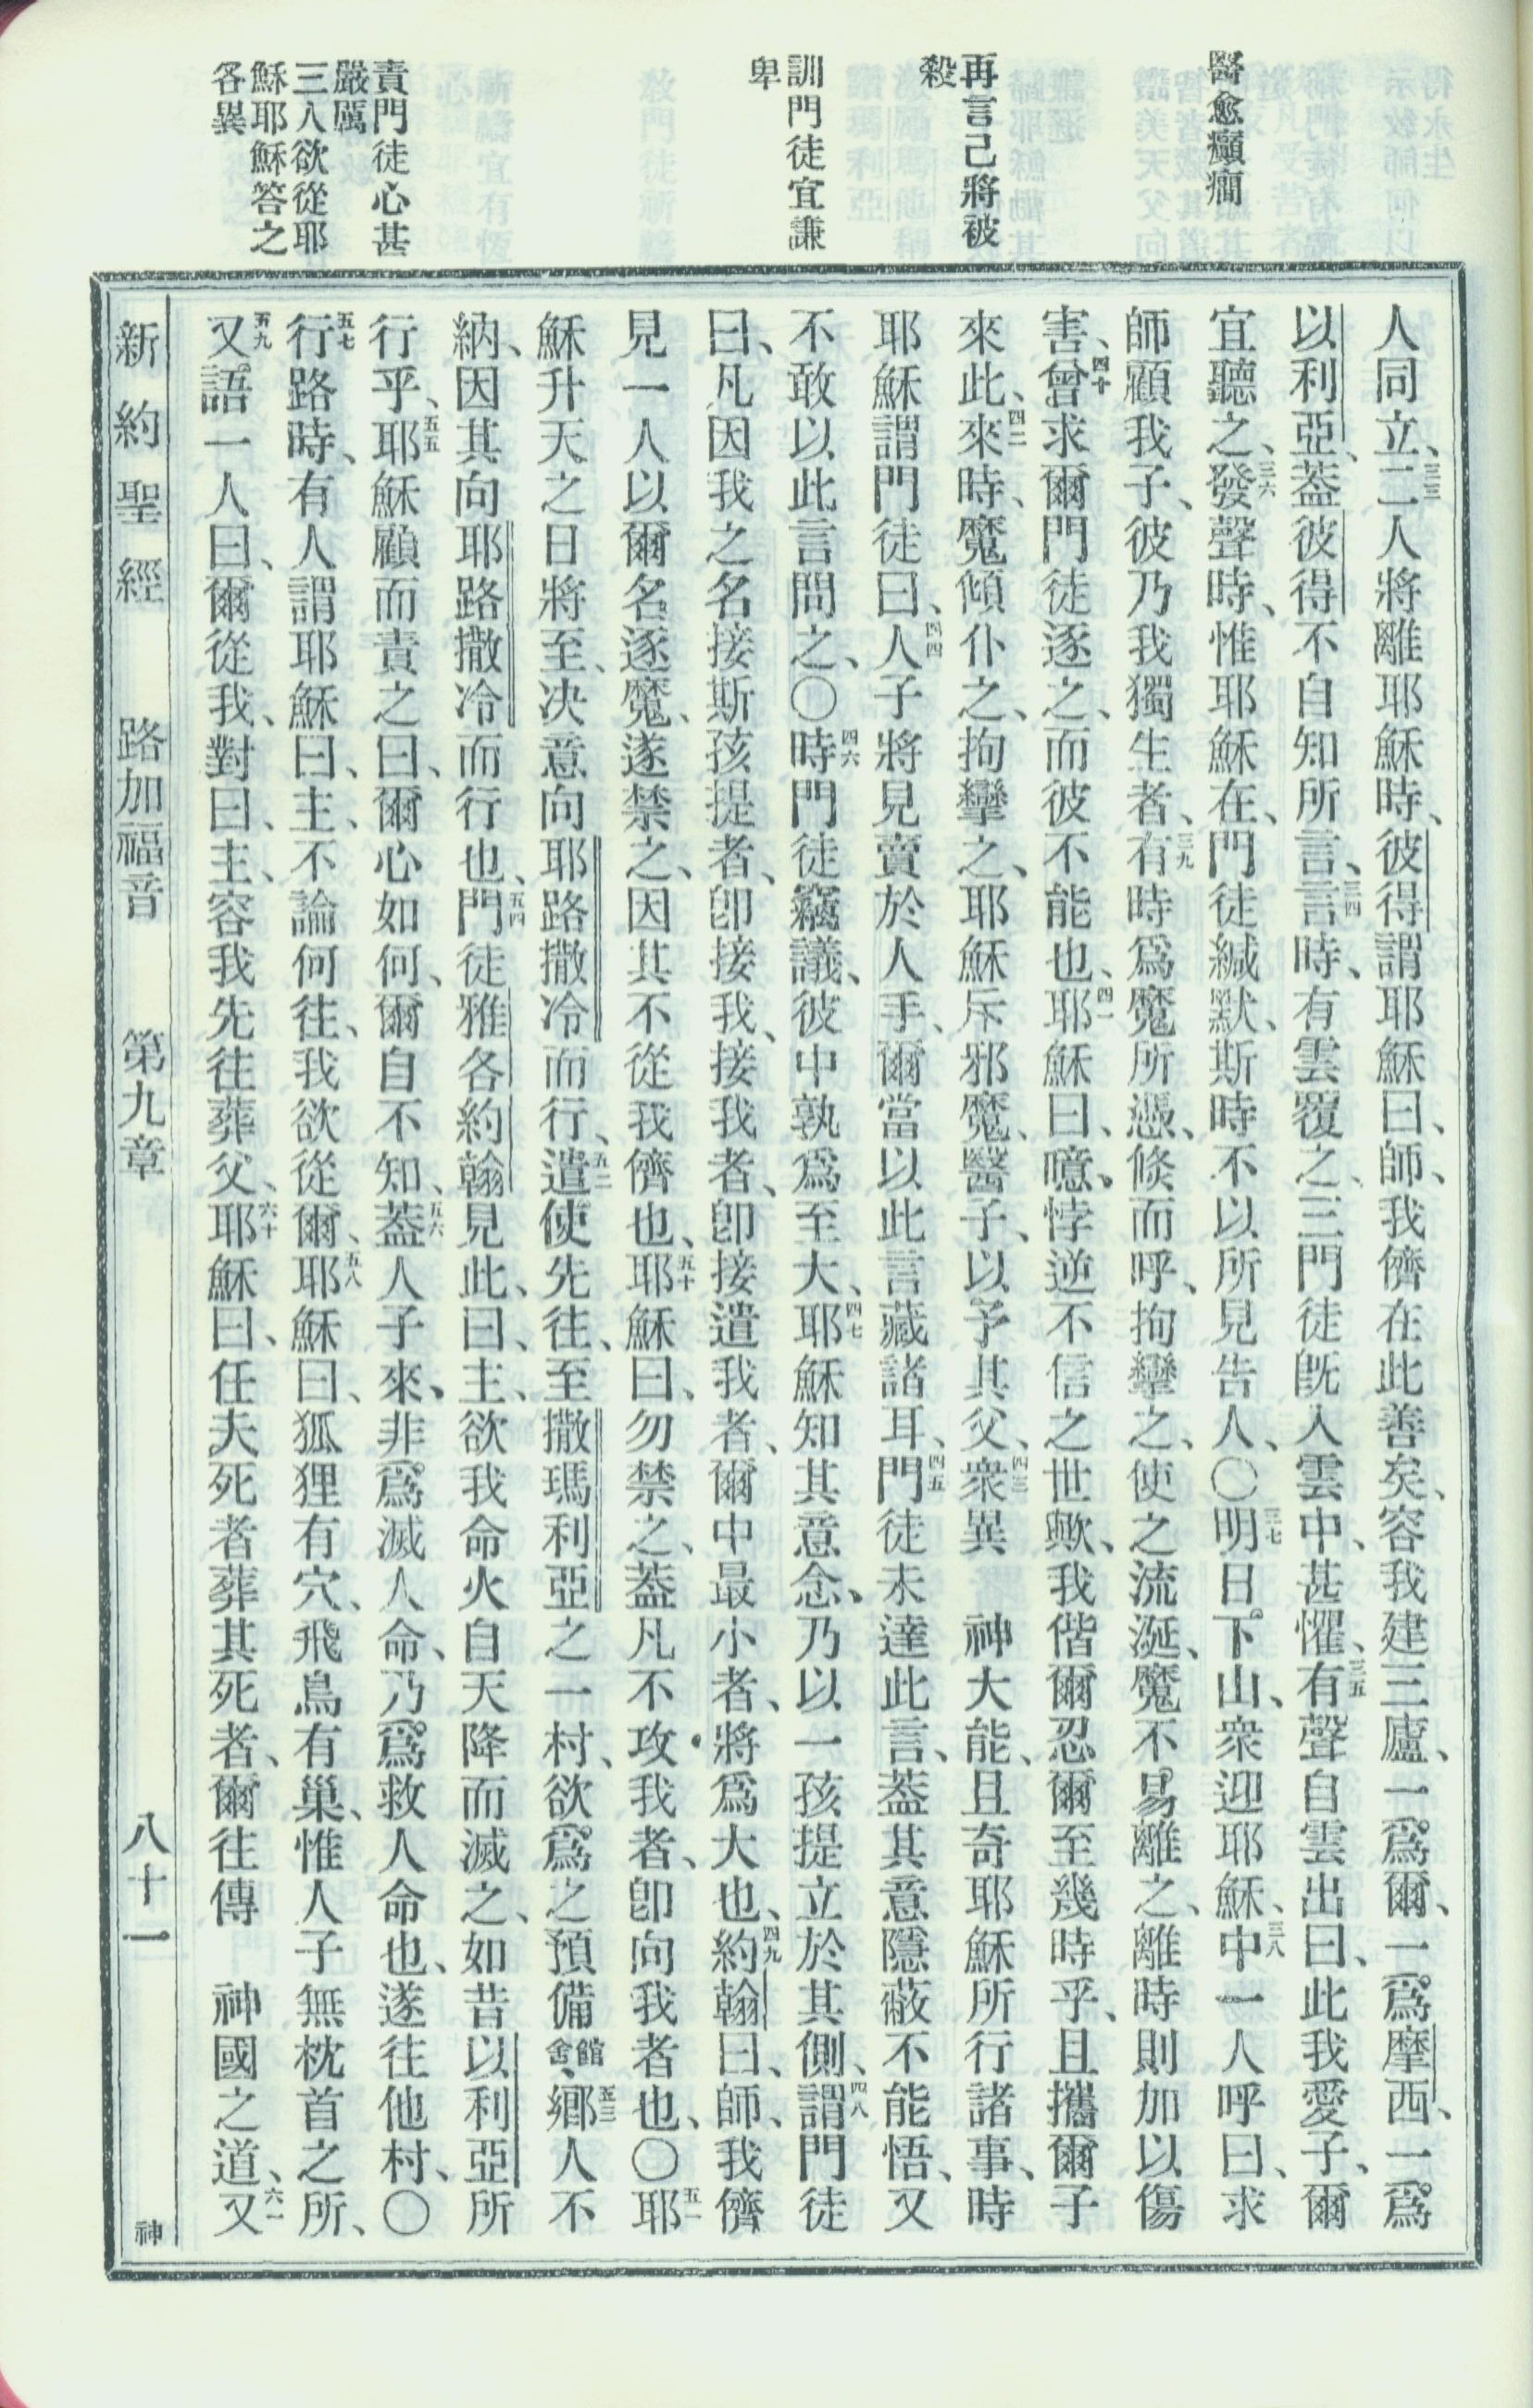 醫愈癲癎
再言己將被
殺
訓門徒宜謙
卑
責門徒心甚
嚴厲
三人欲從耶
穌耶穌答之
各異
人同立、三三二人將離耶穌時、彼得謂耶穌曰、師、我儕在此善矣、容我建三廬、一爲爾、一爲摩西、一爲
以利亞、葢彼得不自知所言、三四言時、有雲覆之、三門徒旣入雲中、甚懼、三五有聲自雲出曰、此我愛子、爾
宜聽之、三六發聲時、惟耶穌在、門徒緘默、斯時不以所見告人、〇三七明日下山、衆迎耶穌、三八中一人呼曰、求
師顧我子、彼乃我獨生者、三九有時爲魔所憑、倏而呼、拘攣之、使之流涎、魔不易離之、離時則加以傷
害、四十曾求爾門徒逐之、而彼不能也、四一耶穌曰、噫、悖逆不信之世歟、我偕爾忍爾至幾時乎、且攜爾子
來此、四二來時、魔傾仆之、拘攣之、耶穌斥邪魔、醫子、以予其父、四三衆異　神大能、且奇耶穌所行諸事、時
耶穌謂門徒曰、四四人子將見賣於人手、爾當以此言藏諸耳、四五門徒未達此言、葢其意隱蔽不能悟、又
不敢以此言問之、〇四六時門徒竊議、彼中孰爲至大、四七耶穌知其意念、乃以一孩提立於其側、四八謂門徒
曰、凡因我之名接斯孩提者、卽接我、接我者、卽接遣我者、爾中最小者、將爲大也、四九約翰曰、師、我儕
見一人以爾名逐魔、遂禁之、因其不從我儕也、五十耶穌曰、勿禁之、葢凡不攻我者、卽向我者也、〇五一耶
穌升天之日將至、决意向耶路撒冷而行、五二遣使先往、至撒瑪利亞之一村、欲爲之預備館舍、五三鄉人不
納、因其向耶路撒冷而行也、五四門徒雅各約翰見此、曰、主、欲我命火自天降而滅之、如昔以利亞所
行乎、五五耶穌顧而責之曰、爾心如何、爾自不知、五六葢人子來、非爲滅人命、乃爲救人命也、遂往他村、〇
五七行路時、有人謂耶穌曰、主、不論何往、我欲從爾、五八耶穌曰、狐狸有穴、飛鳥有巢、惟人子無枕首之所、
五九又語一人曰、爾從我、對曰、主、容我先往葬父、六十耶穌曰、任夫死者葬其死者、爾往傳　神國之道、六一又
新約聖經　路加福音　第九章　八十一　神